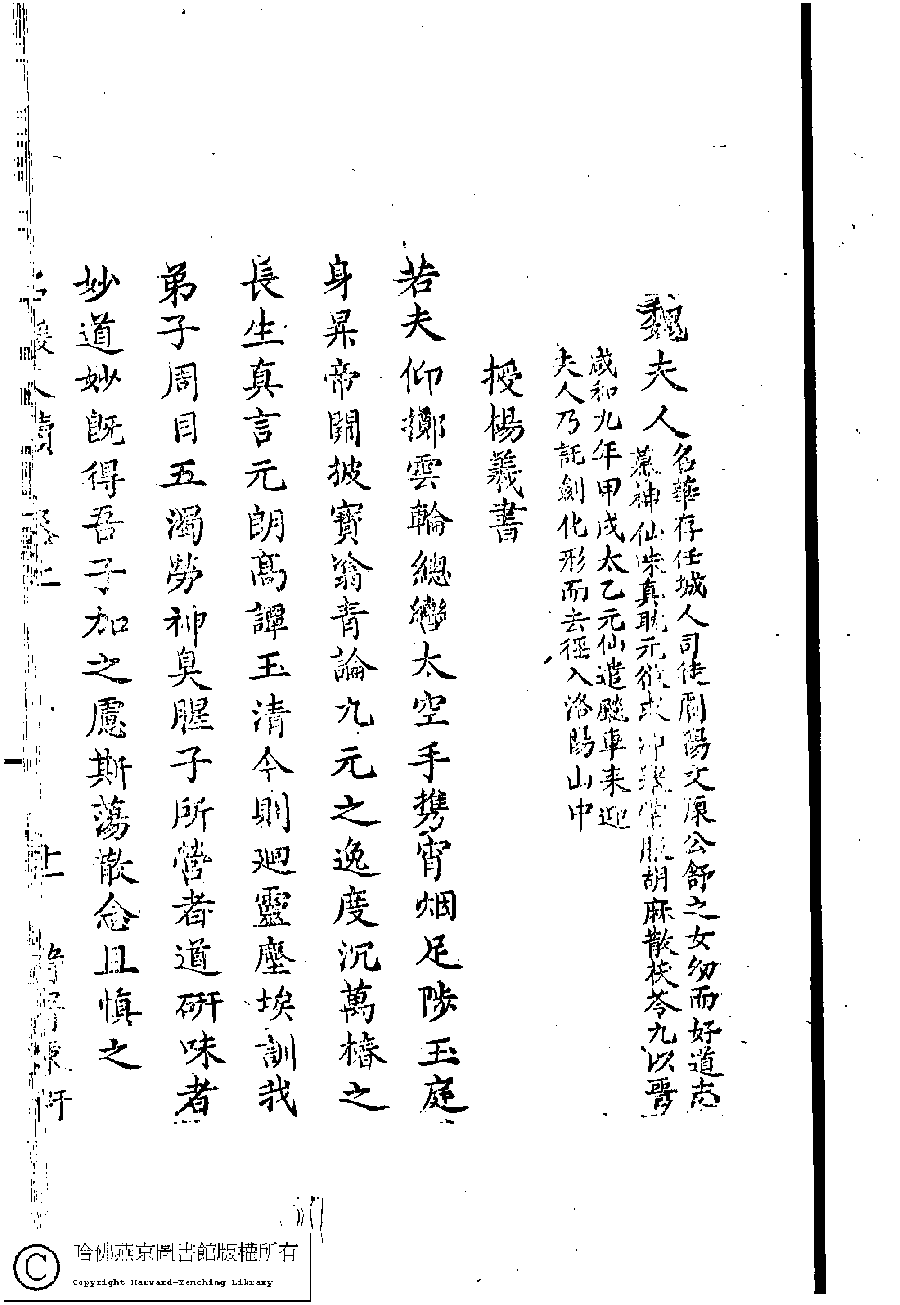 魏夫人
名華存任城人司徒劇陽文康公舒之女幼而好道尚
慕神仙味真耽元欲求冲舉常服胡麻散茯苓九以晋
咸和九年甲戌太乙元仙遣飈車来迎
夫人乃託劍化形而去徑入洛陽山中
授楊羲書
若夫仰擲雲輪總轡太空手携宵烟足陟玉庭
身昇帝闕披寶翁青論九元之逸度沉萬椿之
長生真言元朗高譚玉清今則廻靈塵埃訓我
弟子周目五濁勞神臭腥子所營者道研味者
妙道妙既得吾子加之慮斯蕩散念且慎之
哈佛燕京圖書館版權所有
Copyright Harvard-Yenching Library